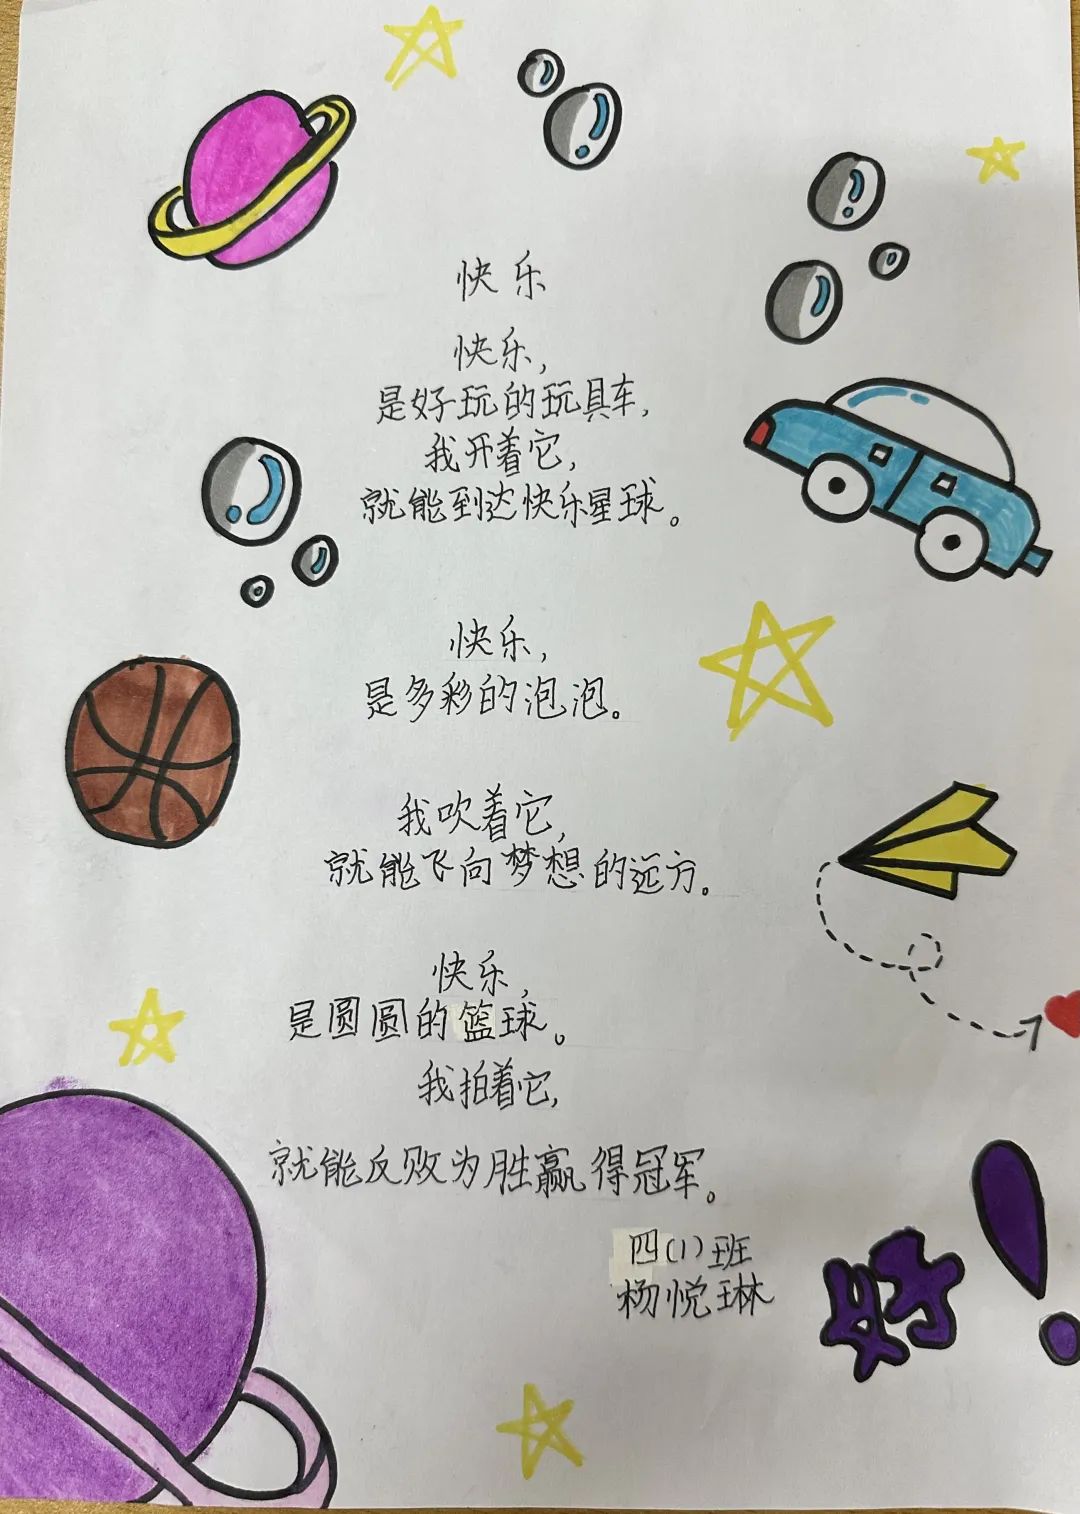 快乐
快乐，
是好玩的玩具车，
我开着它，
就能到达快乐星球。
快乐，
是多彩的泡泡。
我吹着它，
就能飞向梦想的远方。
快乐，
是圆圆的篮球。
我拍着它，
就能反败为胜赢得冠军。
四(1)班
杨悦琳
好！